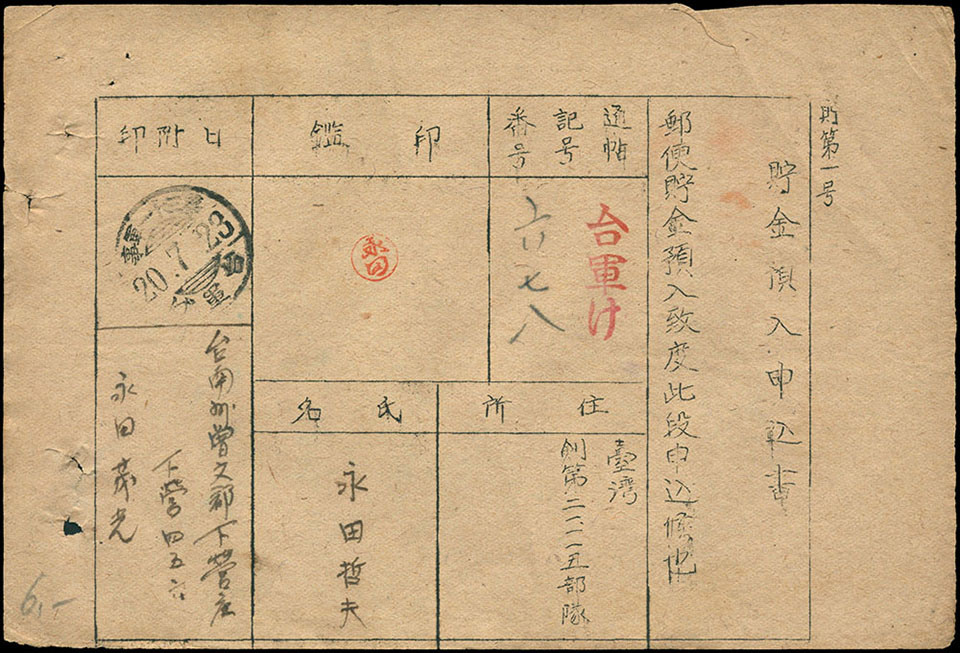 貯第一号
貯金預入申込書
郵便貯金預入致度此段申込候也
通帖
記号
番号
台軍け
七八
印鑑
永田
日附印
台
20.7.23
住所
臺湾
創第二一一一五部隊
氏名
永田哲夫
台南州曽文郡下営庄
下営四五六
永田茂光
6,-